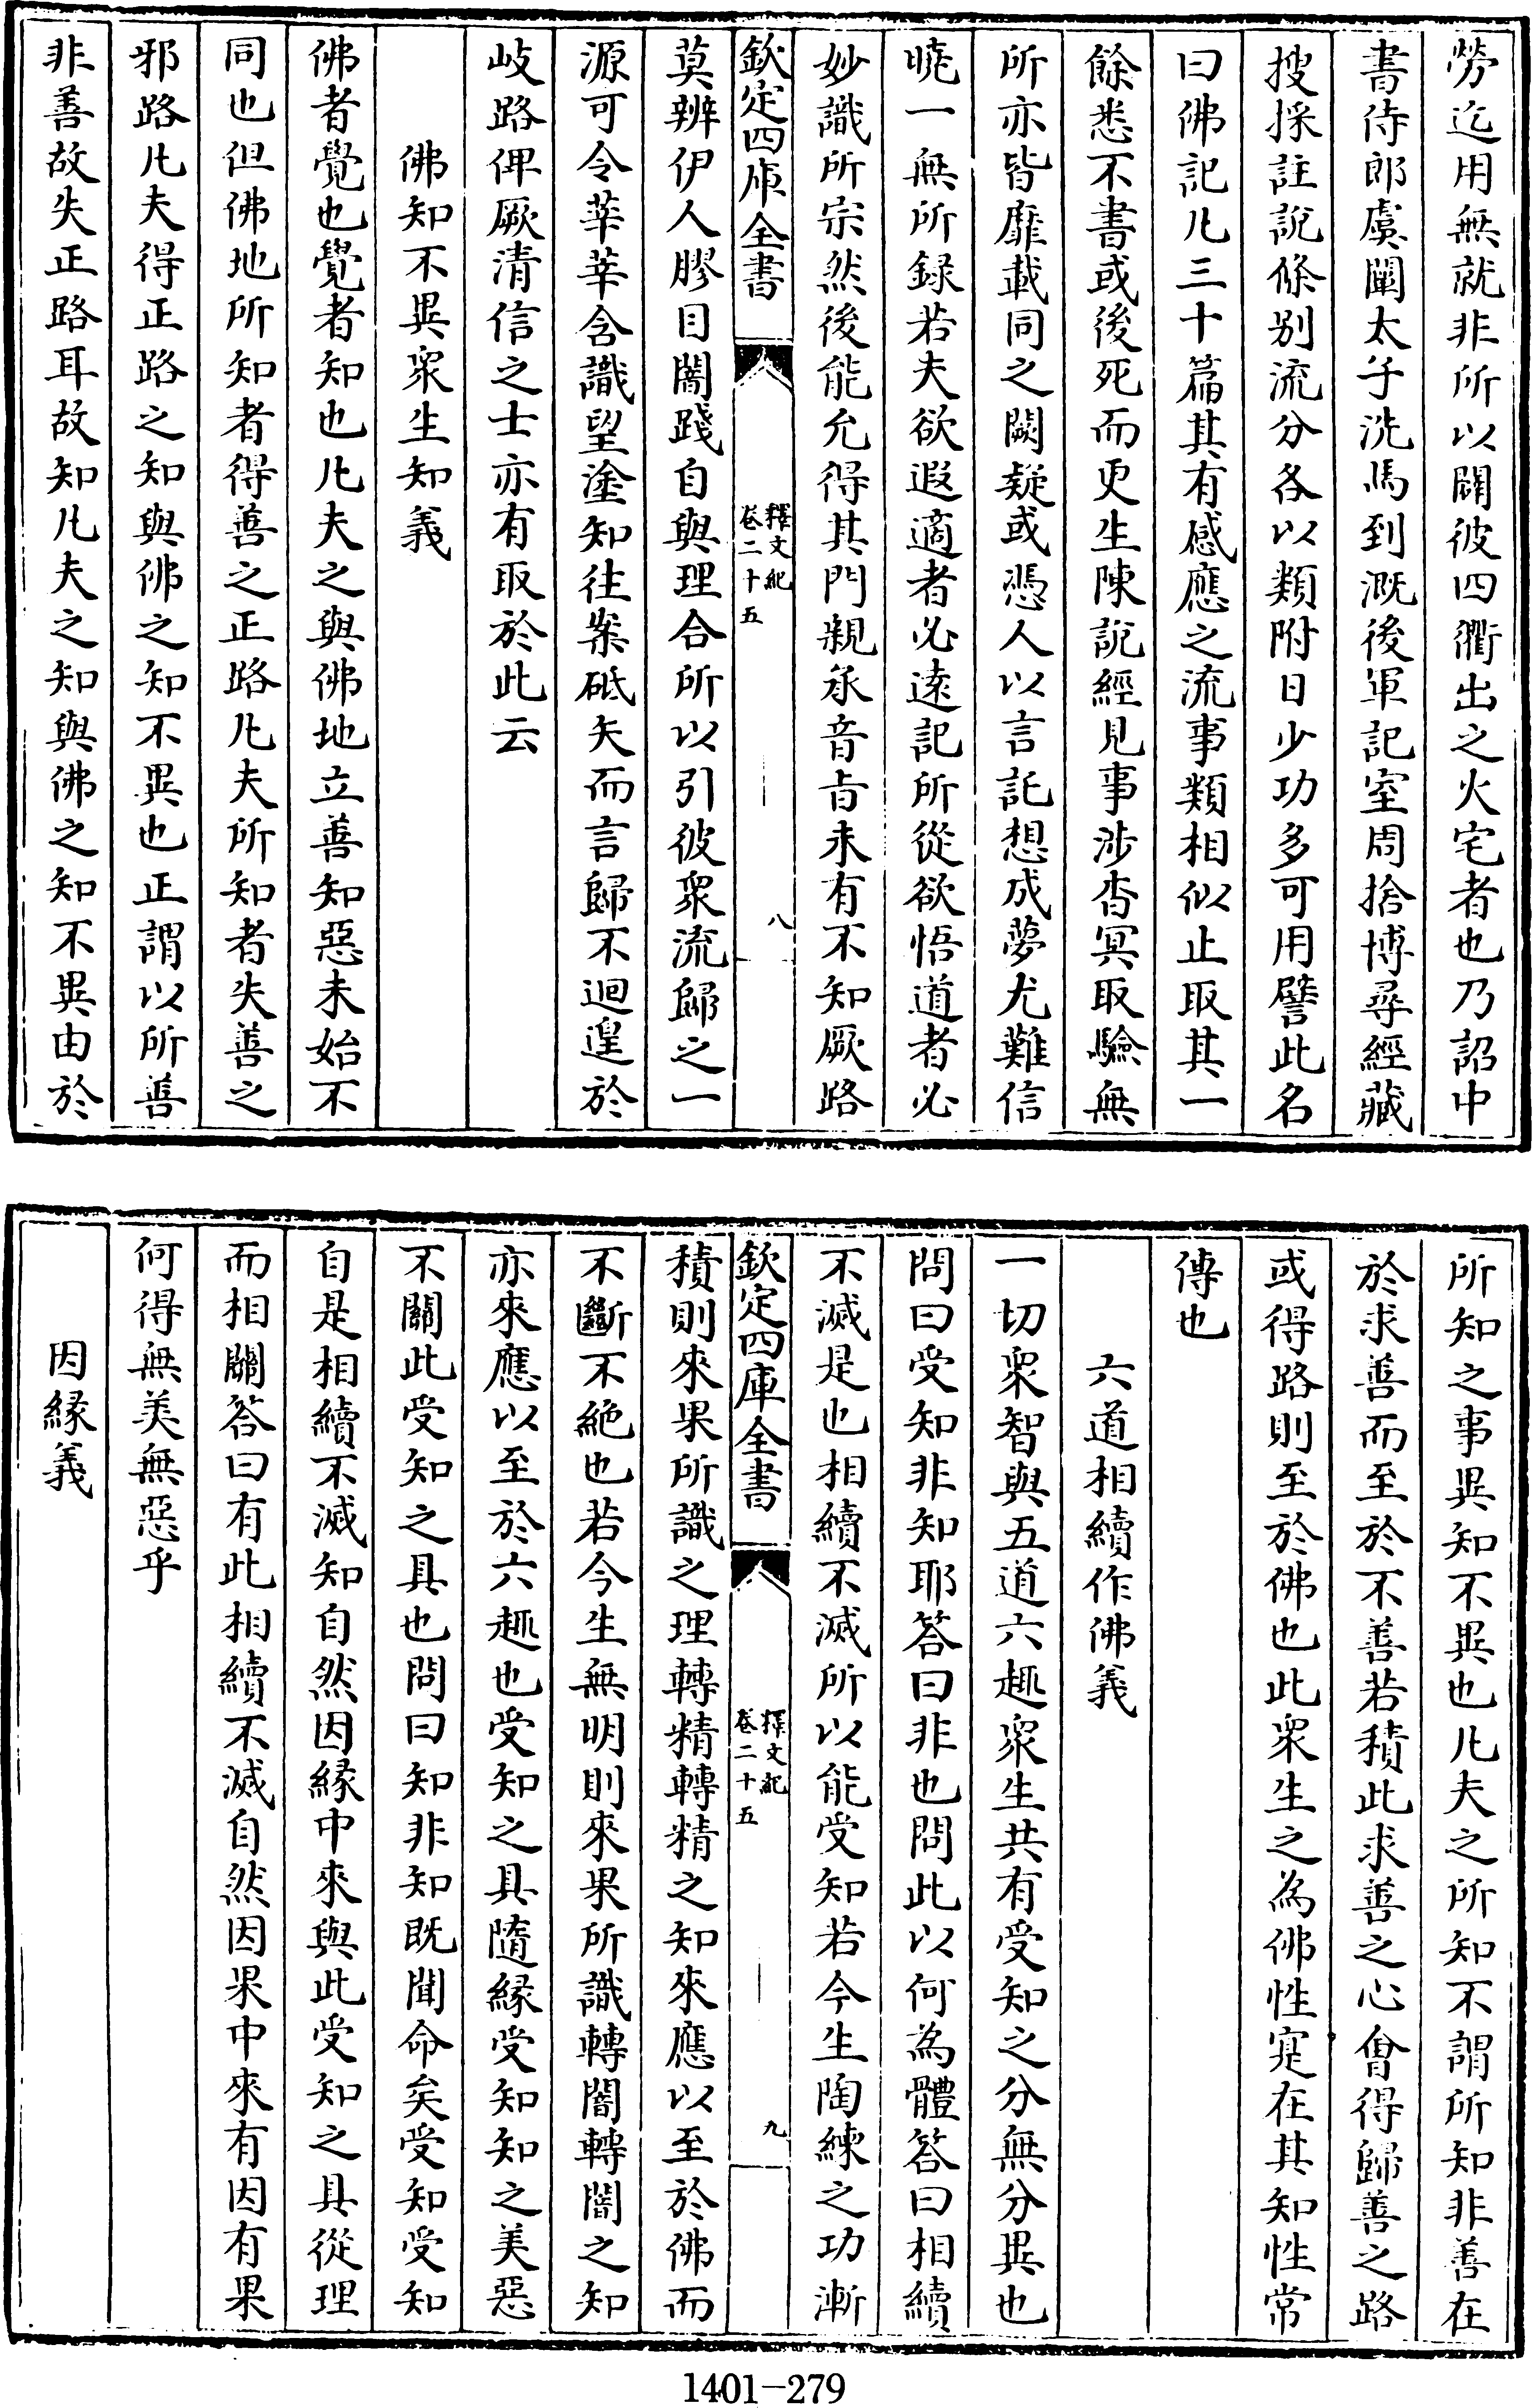 勞迄用無就非所以闢彼四衢出之火宅者也乃詔中
書侍郎虞闡太子洗馬到溉後軍記室周捨博尋經藏
搜採註說條别流分各以類附日少功多可用譬此名
曰佛記凡三十篇其有感應之流事類相似止取其一
餘悉不書或後死而更生陳說經見事涉杳冥取驗無
所亦皆靡載同之闕疑或憑人以言託想成夢尤難信
曉一無所録若夫欲遐適者必遠記所從欲悟道者必
妙識所宗然後能允得其門親承音旨未有不知厥路
欽定四庫全書
釋文紀
卷二十五
八
莫辨伊人膠目闇踐自與理合所以引彼衆流歸之一
源可令莘莘含識望塗知往案砥矢而言歸不迴遑於
岐路俾厥清信之士亦有取於此云
佛知不異衆生知義
佛者覺也覺者知也凡夫之與佛地立善知惡未始不
同也但佛地所知者得善之正路凡夫所知者失善之
邪路凡夫得正路之知與佛之知不異也正謂以所善
非善故失正路耳故知凡夫之知與佛之知不異由於
所知之事異知不異也凡夫之所知不謂所知非善在
於求善而至於不善若積此求善之心會得歸善之路
或得路則至於佛也此衆生之為佛性寔在其知性常
傳也
六道相續作佛義
一切衆智與五道六趣衆生共有受知之分無分異也
問曰受知非知耶答曰非也問此以何為體答曰相續
不滅是也相續不滅所以能受知若今生陶練之功漸
欽定四庫全書
釋文紀
卷二十五
九
積則來果所識之理轉精轉精之知來應以至於佛而
不斷不絶也若今生無明則來果所識轉闇轉闇之知
亦來應以至於六趣也受知之具隨緣受知知之美惡
不關此受知之具也問曰知非知既聞命矣受知受知
自是相續不滅知自然因緣中來與此受知之具從理
而相關答曰有此相續不滅自然因果中來有因有果
何得無美無惡乎
因緣義
1401-279